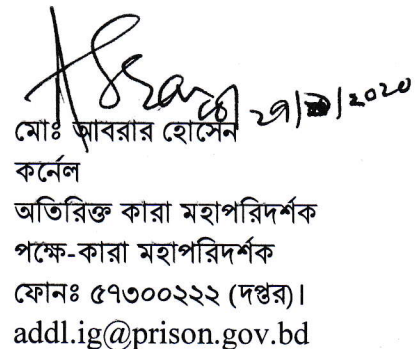 ২৭/  /২০২০
মোঃ আবরার হোসেন
কর্নেল
অতিরিক্ত কারা মহাপরিদর্শক
পক্ষে-কারা মহাপরিদর্শক
ফোনঃ ৫৭৩০০২২২ (দপ্তর)।
addl.ig@prison.gov.bd